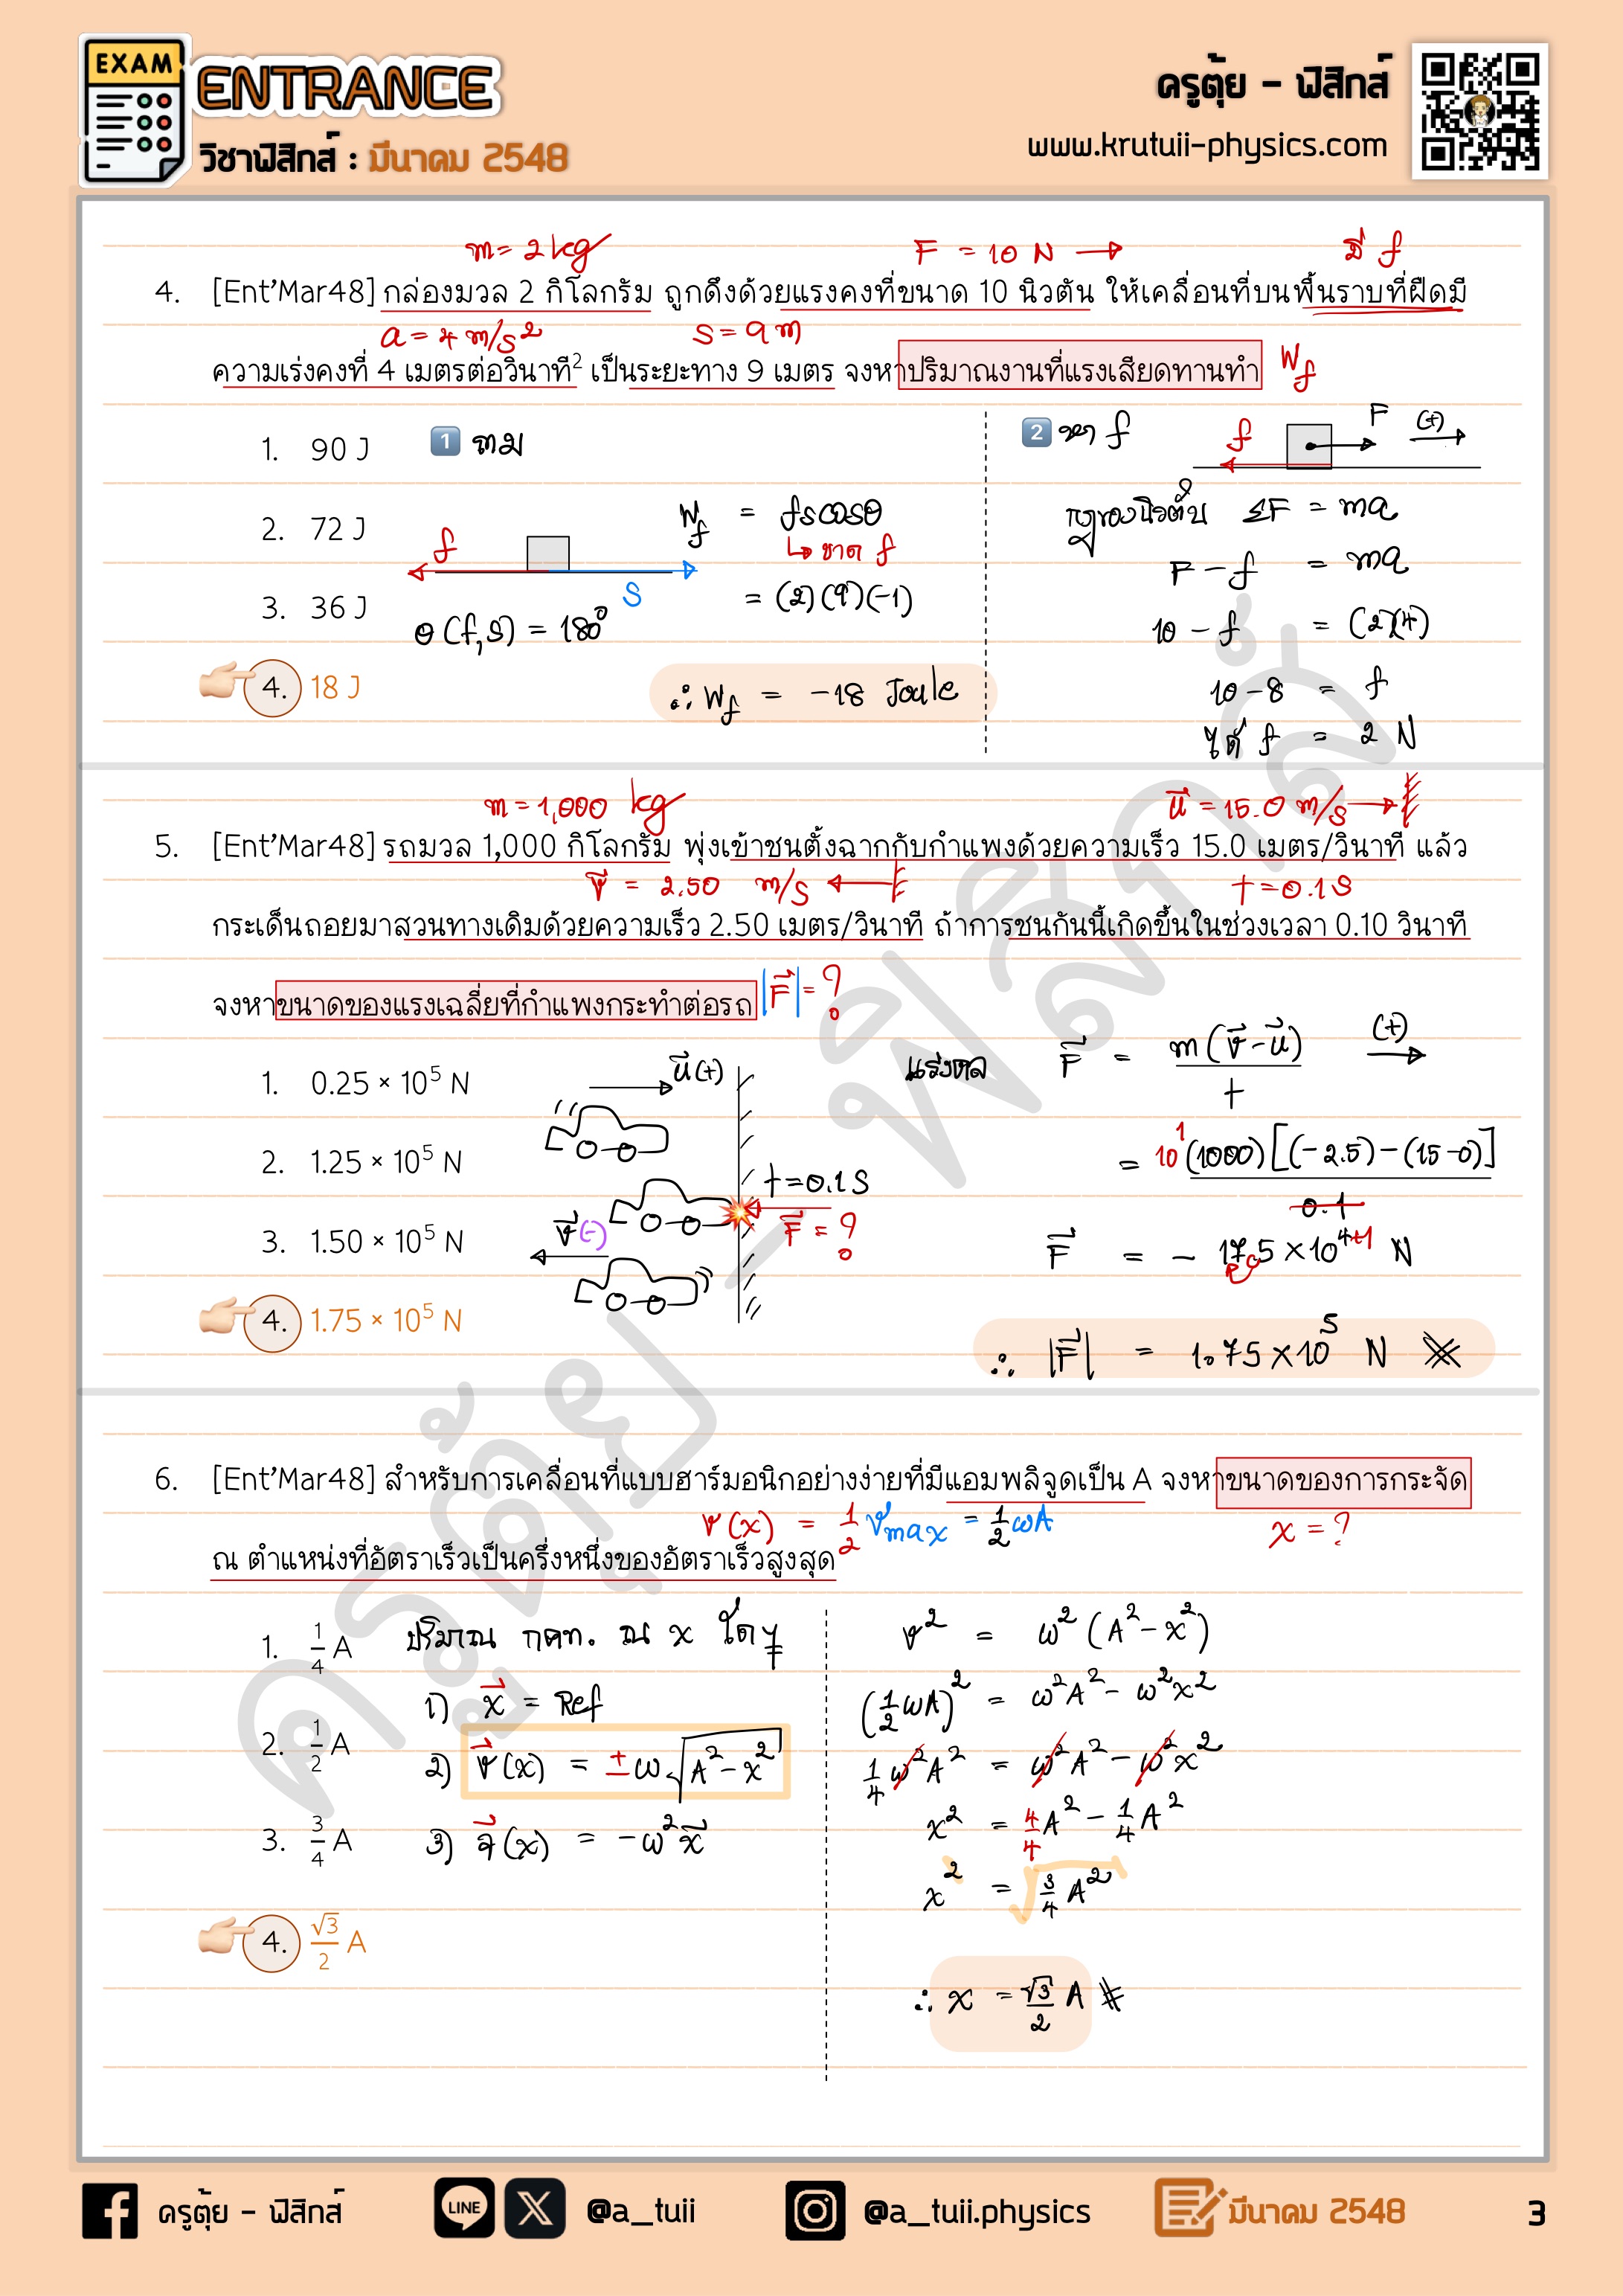 EXAM
ENTRANCE
วิชาฟิสิกส์ : มีนาคม 2548
ครูตุ้ย - ฟิสิกส์
www.krutuii-physics.com
m = 2 kg
F = 10 N
มี f
4. [Ent'Mar48] กล่องมวล 2 กิโลกรัม ถูกดึงด้วยแรงคงที่ขนาด 10 นิวตัน ให้เคลื่อนที่บนพื้นราบที่ฝืดมี
a = 4 m/s²
s = 9 m
ความเร่งคงที่ 4 เมตรต่อวินาที² เป็นระยะทาง 9 เมตร จงหาปริมาณงานที่แรงเสียดทานทำ
W_f
1. 90 J
2. 72 J
3. 36 J
4. 18 J
1 ถาม
f
S
θ(f,s) = 180°
W_f = fscosθ
↳ ขาด f
= (2)(9)(-1)
∴ W_f = -18 Joule
2 หา f
f
F
(+)
กฎของนิวตัน ΣF = ma
F - f = ma
10 - f = (2)(4)
10 - 8 = f
ได้ f = 2 N
m = 1,000 kg
u⃗ = 15.0 m/s
5. [Ent'Mar48] รถมวล 1,000 กิโลกรัม พุ่งเข้าชนตั้งฉากกับกำแพงด้วยความเร็ว 15.0 เมตร/วินาที แล้ว
v⃗ = 2.50 m/s
t = 0.1 s
กระเด็นถอยมาสวนทางเดิมด้วยความเร็ว 2.50 เมตร/วินาที ถ้าการชนกันนี้เกิดขึ้นในช่วงเวลา 0.10 วินาที
จงหาขนาดของแรงเฉลี่ยที่กำแพงกระทำต่อรถ
|F⃗| = ?
1. 0.25 × 10⁵ N
2. 1.25 × 10⁵ N
3. 1.50 × 10⁵ N
4. 1.75 × 10⁵ N
u⃗(+)
t = 0.1 s
F⃗ = ?
v⃗(-)
แรงดล F⃗ = m(v⃗ - u⃗) / t
(+)
= 10¹ (1000)[(-2.5) - (15.0)] / 0.1
F⃗ = - 17.5 × 10⁴⁺¹ N
∴ |F⃗| = 1.75 × 10⁵ N
6. [Ent'Mar48] สำหรับการเคลื่อนที่แบบฮาร์มอนิกอย่างง่ายที่มีแอมพลิจูดเป็น A จงหาขนาดของการกระจัด
v(x) = 1/2 v_max = 1/2 ωA
x = ?
ณ ตำแหน่งที่อัตราเร็วเป็นครึ่งหนึ่งของอัตราเร็วสูงสุด
1. 1/4 A
2. 1/2 A
3. 3/4 A
4. √3/2 A
ปริมาณ กคท. ณ x ใดๆ
1) x⃗ = Ref
2) v⃗(x) = ±ω√(A² - x²)
3) a⃗(x) = -ω²x⃗
v² = ω²(A² - x²)
(1/2 ωA)² = ω²A² - ω²x²
1/4 ω²A² = ω²A² - ω²x²
x² = 4/4 A² - 1/4 A²
x² = √(3/4 A²)
∴ x = √3/2 A
ครูตุ้ย - ฟิสิกส์
ครูตุ้ย - ฟิสิกส์
LINE
@a_tuii
@a_tuii.physics
มีนาคม 2548
3